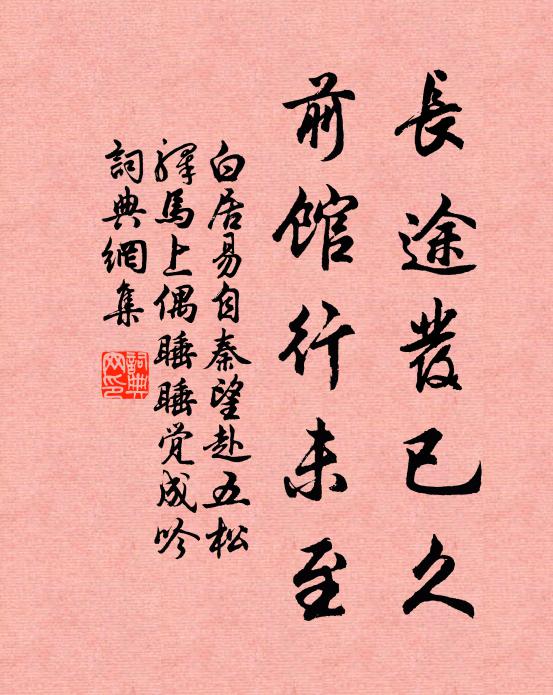 長途發已久
前館行未至
白居易自秦望赴五松
驛馬上偶睡睡覚成吟
詞典網集
詞典
网印